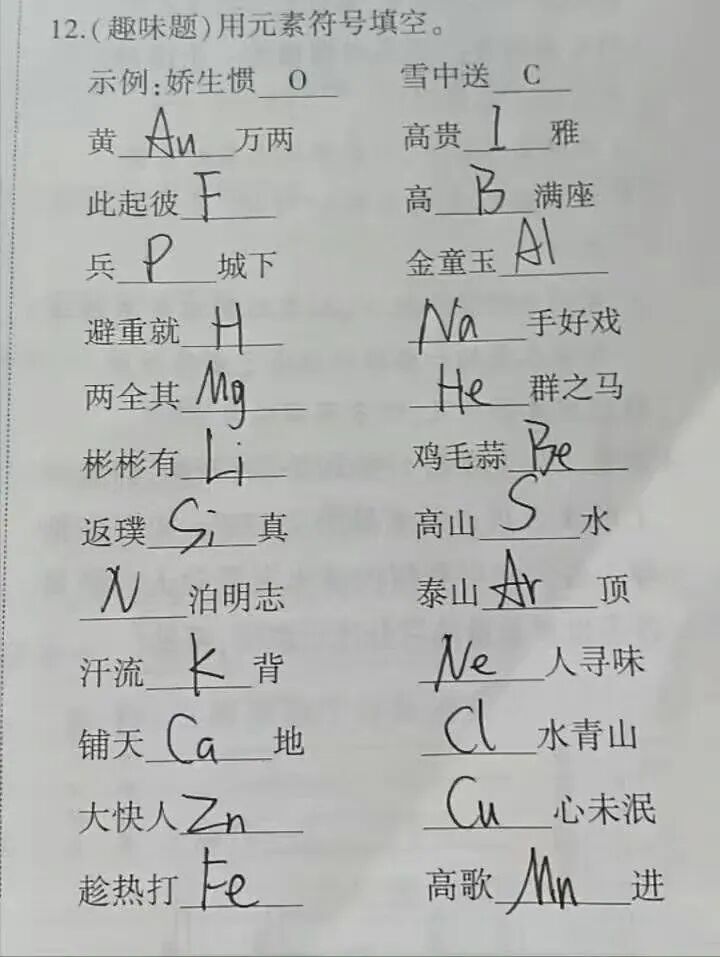 12.(趣味题)用元素符号填空。
示例:娇生惯 O 雪中送 C
黄 Au 万两 高贵 I 雅
此起彼 F 高 B 满座
兵 P 城下 金童玉 Al
避重就 H Na 手好戏
两全其 Mg He 群之马
彬彬有 Li 鸡毛蒜 Be
返璞 Si 真 高山 S 水
N 泊明志 泰山 Ar 顶
汗流 K 背 Ne 人寻味
铺天 Ca 地 Cl 水青山
大快人 Zn Cu 心未泯
趁热打 Fe 高歌 Mn 进